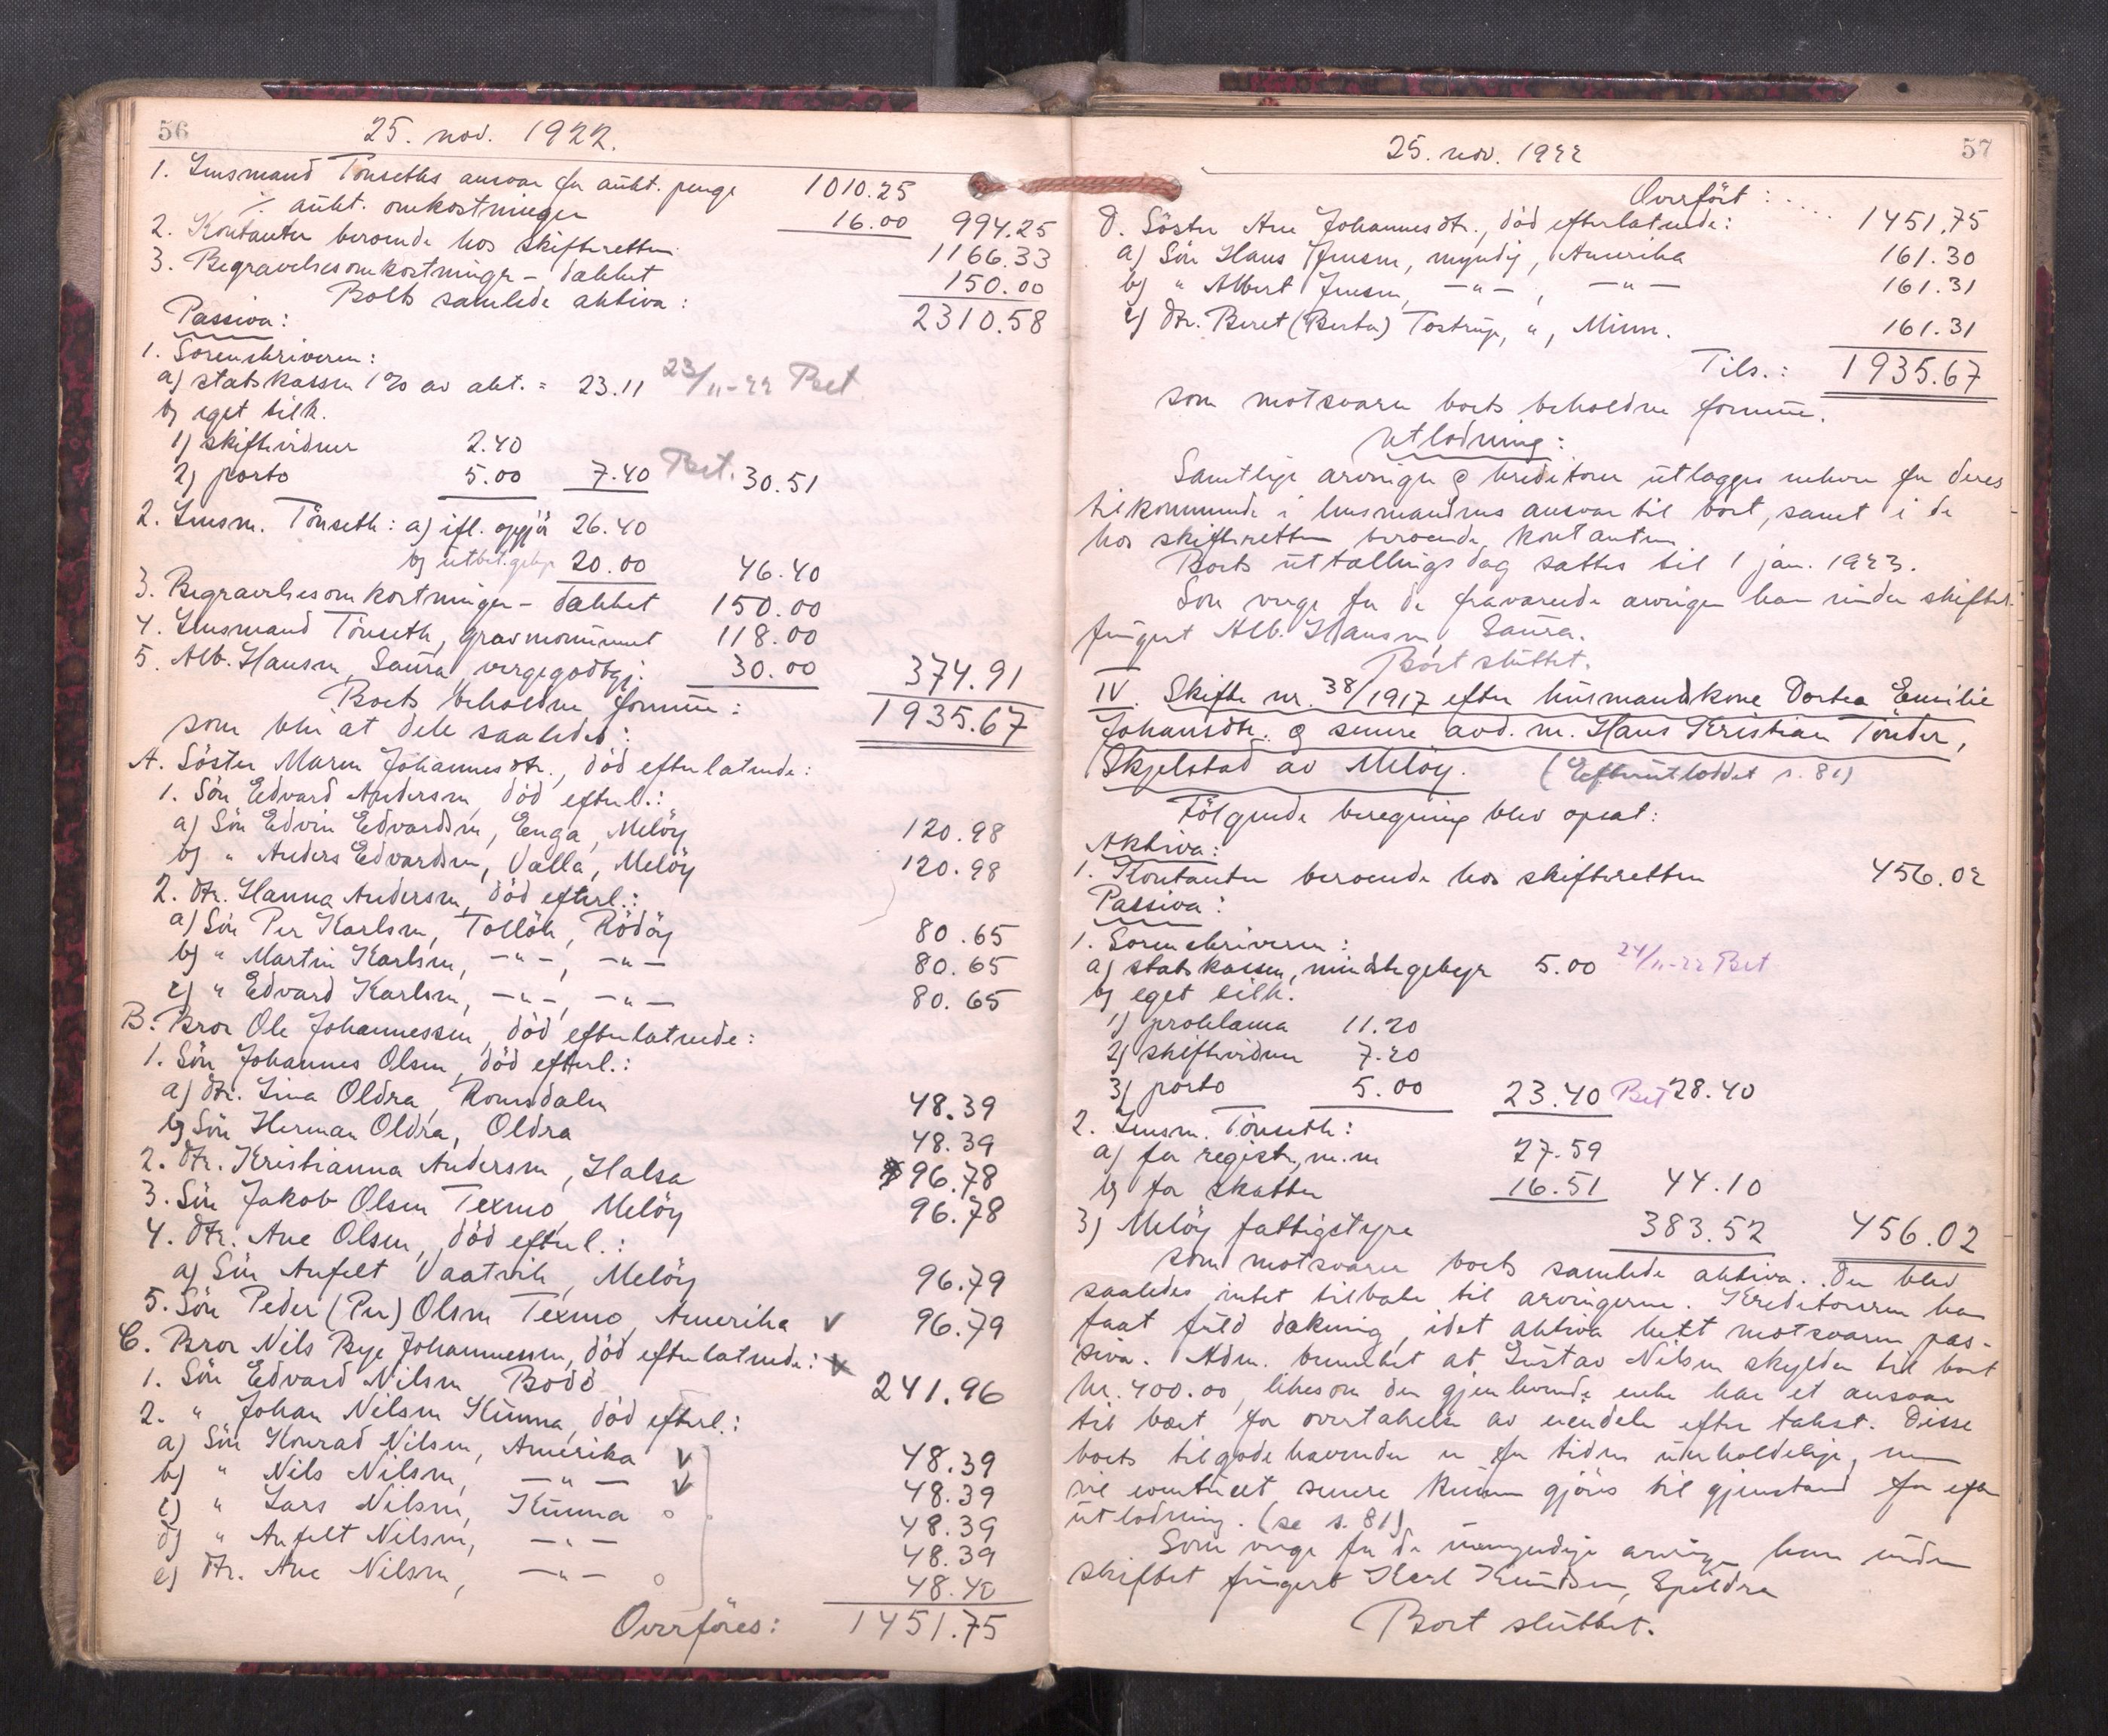 56
25. nov. 1922.
1. Lensmand Tönseths ansvar for aukt. penge 1010.25
÷ aukt. omkostninger 16.00 994.25
2. Kontanter beroende hos skifteretten 1166.33
3. Begravelsesomkostninger - dækket 150.00
Boets samlede aktiva: 2310.58
Passiva:
1. Sorenskriveren:
a) statskassen 1% av akt. = 23.11 23/11-22 Bet
b) eget tilk.
1) skiftevidner 2.40
2) porto 5.00 7.40 Bet. 30.51
2. Lensm. Tönseth: a) ifl. opgjör 26.40
b) utbet.gebyr 20.00 46.40
3. Begravelsesomkostninger - dækket 150.00
4. Lensmand Tönseth, gravmonument 118.00
5. Alb. Hansen, Saura, vergegodtgj. 30.00 374.91
Boets beholdne formue: 1935.67
som blir at dele saaledes:
A. Söster Maren Johannesdtr., död efterlatende:
1. Sön Edvard Andersen, död efterl.:
a) Sön Edvin Edvardsen, Enga, Melöy 120.98
b) " Anders Edvardsen, Valla, Melöy 120.98
2. Dtr. Hanna Andersen, död efterl.:
a) Sön Per Karlsen, Tollök, Rödöy 80.65
b) " Martin Karlsen, -"-, -"- 80.65
c) " Edvard Karlsen, -"-, -"- 80.65
B. Bror Ole Johannessen, död efterlatende:
1. Sön Johannes Olsen, död efterl.:
a) Dtr. Lina Oldra, Romsdalen 48.39
b) Sön Herman Oldra, Oldra 48.39
2. Dtr. Kristianna Andersen, Halsa 96.78
3. Sön Jakob Olsen Texmo, Melöy 96.78
4. Dtr. Ane Olsen, död efterl.:
a) Sön Anfelt Vaatvik, Melöy 96.79
5. Sön Peder (Per) Olsen Texmo, Amerika V 96.79
C. Bror Nils Bye Johannessen, död efterlatende: V
1. Sön Edvard Nilsen, Bodö 241.96
2. " Johan Nilsen Kunna, död efterl.:
a) Sön Konrad Nilsen, Amerika V 48.39
b) " Nils Nilsen, -"- V 48.39
c) " Lars Nilsen, Kunna o 48.39
d) " Anfelt Nilsen, -"- 48.39
e) Dtr. Ane Nilsen, -"- o 48.40
Overföres: 1451.75
57
25. nov. 1922
Overfört: .... 1451.75
D. Söster Ane Johannesdtr., död efterlatende:
a) Sön Hans Jensen, myndig, Amerika 161.30
b) " Albert Jensen, -"-, -"- 161.31
c) Dtr. Beret (Berta) Tostrup, ", Minn. 161.31
Tils.: 1935.67
som motsvarer boets beholdne formue.
Utlodning:
Samtlige arvinger & kreditorer utlægges enhver for deres
tilkommende i lensmandens ansvar til boet, samt i de
hos skifteretten beroende kontanter.
Boets utstallingsdag sættes til 1 jan. 1923.
Som verge for de fraværende arvinger har under skiftet
fungert Alb. Hansen, Saura.
Boet sluttet.
IV. Skifte nr. 38/1917 efter husmandskone Dortea Emilie
Johansdtr. & senere avd. m. Hans Kristian Tönder,
Skjelstad av Melöy. (Efterutloddet s. 81)
Fölgende beregning blev opsat:
Aktiva:
1. Kontanter beroende hos skifteretten 456.02
Passiva:
1. Sorenskriveren:
a) statskassen, mindstegebyr 5.00 24/11-22 Bet
b) eget tilk.
1) proklama 11.20
2) skiftevidner 7.20
3) porto 5.00 23.40 Bet 28.40
2. Lensm. Tönseth:
a) for registr. m.m 27.59
b) for skatter 16.51 44.10
3) Melöy fattigstyre 383.52 456.02
som motsvarer boets samlede aktiva. Der blev
saaledes intet tilbake til arvingerne. Kreditorerne har
faat fuld dækning, idet aktiva helt motsvarer pas-
siva. Adm. bemerket at Gustav Nilsen skylder til boet
kr. 400.00, likesom den gjenlevende enke har et ansvar
til boet for overtakelse av eiendele efter takst. Disse
boets tilgodehavender er for tiden uerholdelige, men
vil eventuelt senere kunne gjöres til gjenstand for efter
utlodning. (se s. 81)
Som verge for de umyndige arvinger har under
skiftet fungert Karl Knudsen, Spildra
Boet sluttet.